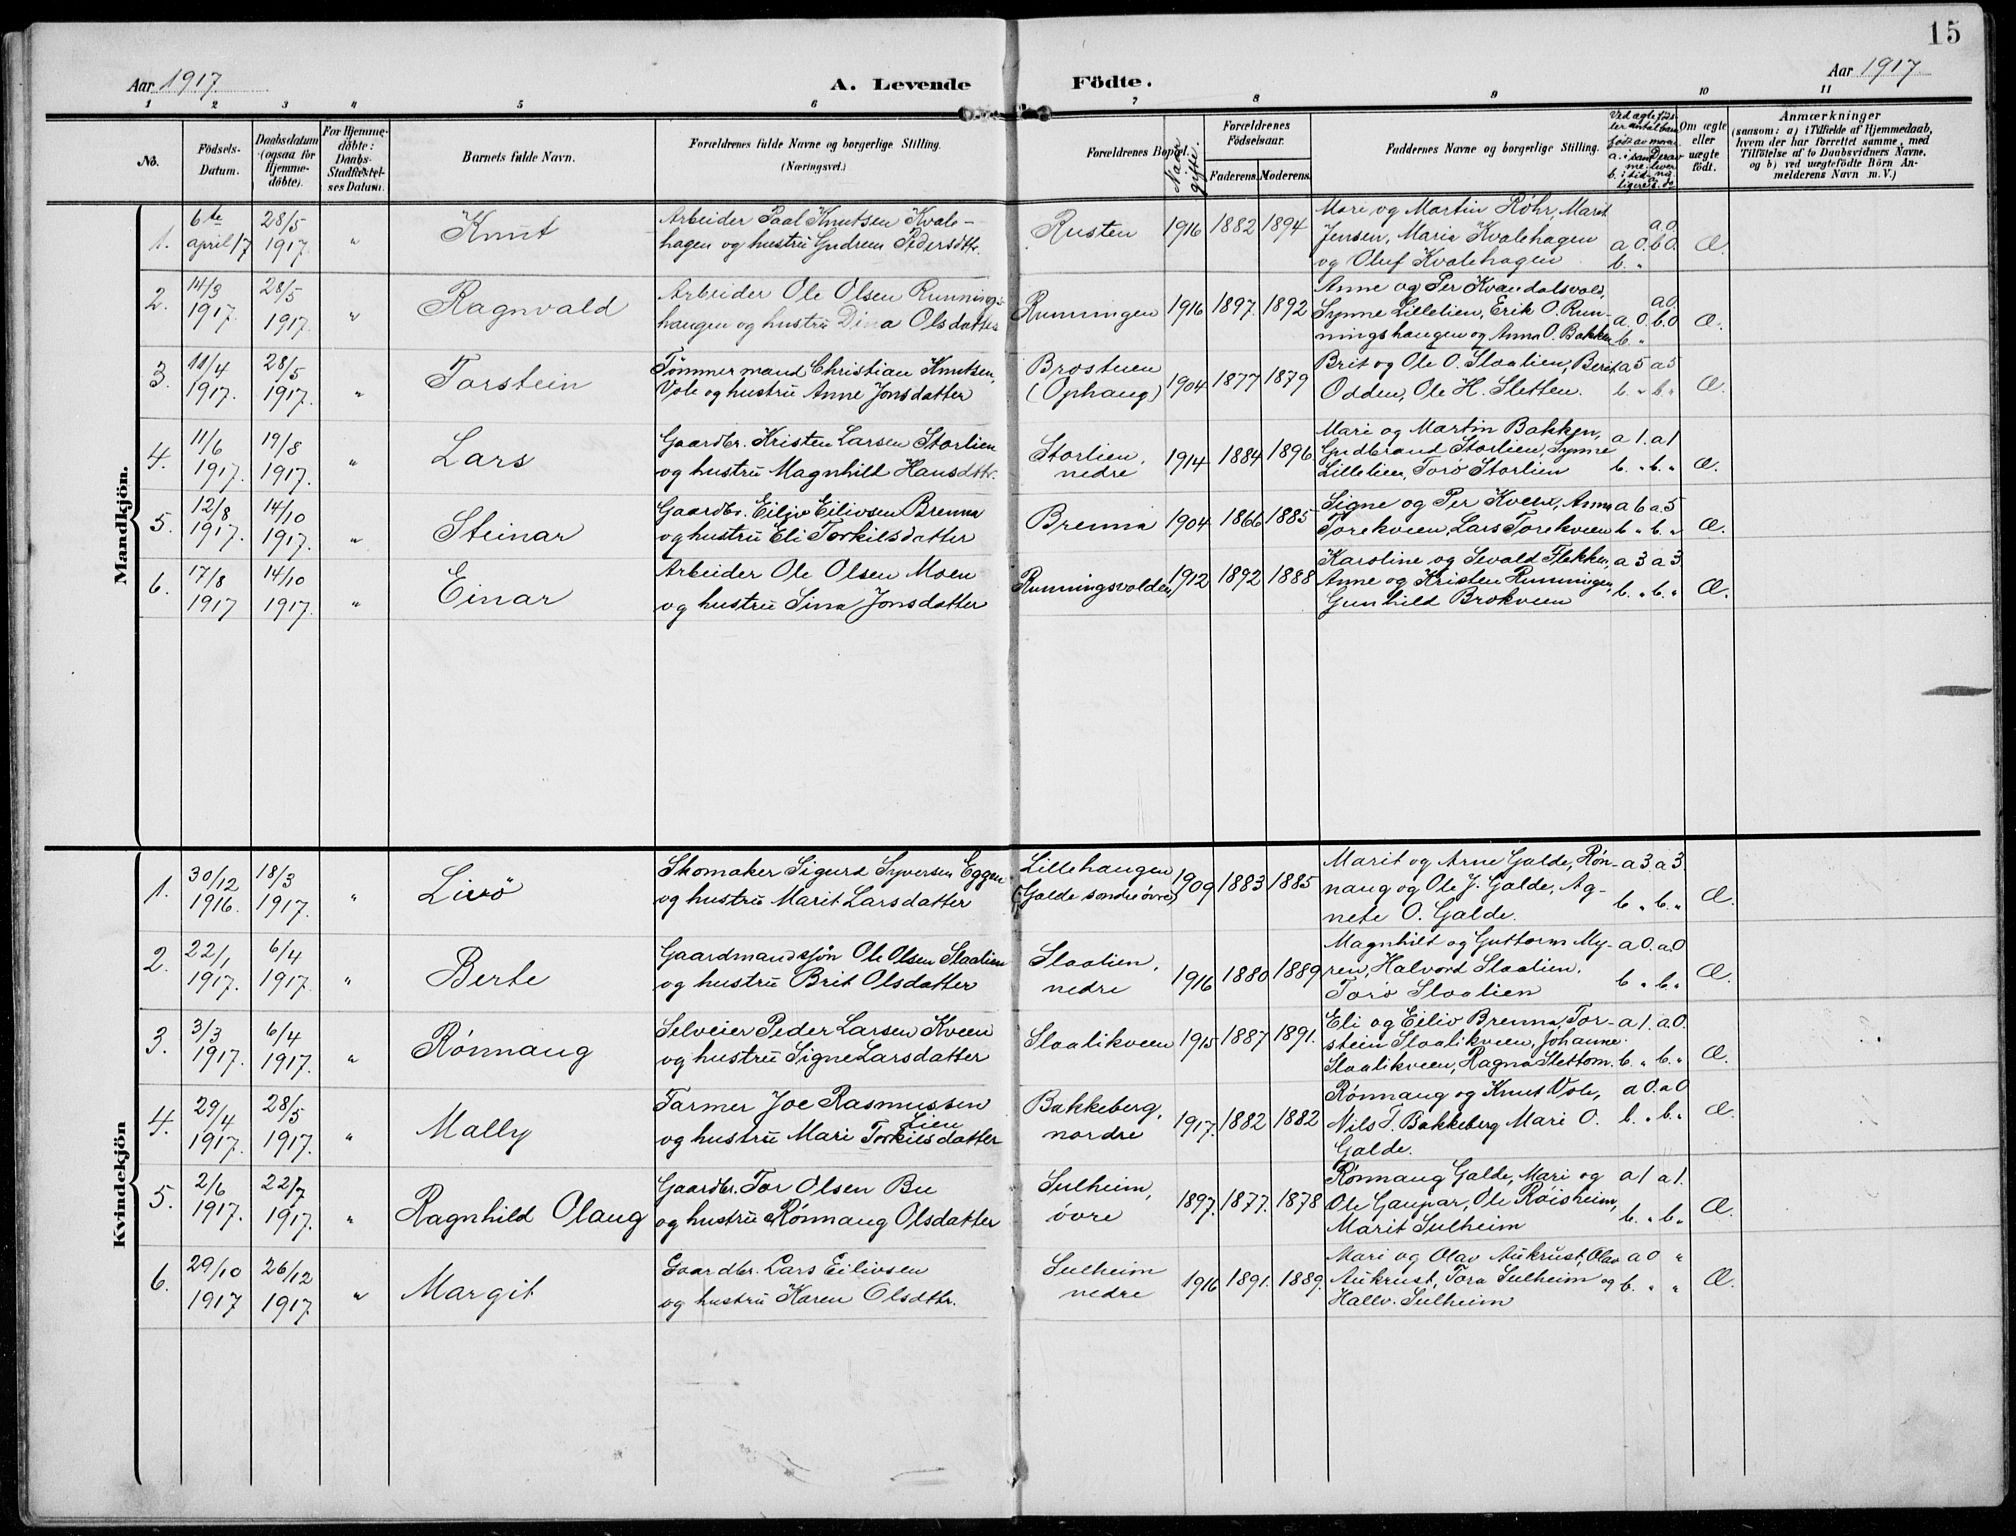 15
Aar 1917
A. Levende Födte.
Aar 1917
1 2 3 4 5 6 7 8 9 10 11
No.
Födsels-Datum.
Daabsdatum (ogsaa for Hjemmedöbte).
For Hjemmedöbte: Daabs-Stadfæstelses Datum.
Barnets fulde Navn.
Forældrenes fulde Navne og borgerlige Stilling.
(Næringsvei.)
Forældrenes Bopæl.
Naar gifte.
Forældrenes Fødselsaar.
Faderens. Moderens.
Faddernes Navne og borgerlige Stilling.
Om ægte eller uægte födt.
Anmærkninger
(saasom: a) i Tilfælde af Hjemmedaab,
hvem der har forrettet samme, med
Tilföielse af to Daabsvidners Navne,
og b) ved uægtefödte Börn An-
melderens Navn m. V.)
Mandkjön.
1. 6te april 17 28/5 1917. " Knut
Arbeider Paal Knutsen Kvale-
hagen og hustru Gudrun Pedersdtr.
Rusten 1916 1882 1894
Mari og Martin Röhr, Marit
Jensen, Maria Kvalehagen
og Oluf Kvalehagen
a 0. b. " a0. b0. Æ.
2. 14/3 1917. 28/5 1917. " Ragnvald
Arbeider Ole Olsen Runnings-
haugen og hustru Dina Olsdatter
Runningen 1916 1897. 1892
Anne og Per Kvandalsvold,
Synne Lillelien, Erik O. Run-
ningshaugen og Anna O. Bakken
a. 0. b. " a0. b.0 Æ.
3. 11/4 1917. 28/5 1917. " Torstein
Tømmermand Christian Knutsen
Vole og hustru Anne Jonsdatter
Brostuen (Ophaug) 1904 1877 1879
Brit og Ole O. Slaalien, Berit
Odden, Ole H. Sletten.
a5 a5 b. " b. " Æ.
4. 11/6 1917. 19/8 1917. " Lars
Gaardbr. Kristen Larsen Storlien
og hustru Magnhild Hansdtr.
Storlien, nedre 1914 1884 1896
Mari og Martin Bakken,
Gudbrand Storlien, Synne
Lillelien, Torö Storlien
a 1. a1 b. " b. " Æ.
5. 12/8 1917. 14/10 1917. " Steinar
Gaardbr. Eiliv Eilivsen Brenna
og hustru Eli Torkilsdatter
Brenna 1904. 1866 1885
Signe og Per Kveen, Anna
Torekveen, Lars Torekveen
a 6 a.5 b " b. " Æ.
6. 17/8 1917 14/10 1917. " Einar
Arbeider Ole Olsen Moen
og hustru Sina Jonsdatter
Runningsvolden 1912 1892 1888
Karoline og Sevald Flekken,
Anne og Kristen Runningen,
Gunhild Brokveen
a 3 a 3 b. " b. " Æ.
Kvindekjön
1. 30/12 1916. 18/3 1917. " Livö
Skomaker Sigurd Syversen Eggen
og hustru Marit Larsdatter
Lillehaugen (Galde søndre øvre) 1909 1883 1885
Marit og Arne Galde, Røn-
naug og Ole J. Galde, Ag-
nete O. Galde.
a 3 a 3. b. " b. " Æ.
2. 22/1 1917. 6/4 1917. " Berte
Gaardmandssøn Ole Olsen Slaalien
og hustru Brit Olsdatter
Slaalien, nedre 1916 1880 1889
Magnhild og Guttorm My-
ren, Halvord Slaalien,
Torö Slaalien
a 0. a.0 b " b. " Æ.
3. 3/3 1917. 6/4 1917. " Rønnaug
Selveier Peder Larsen Kveen
og hustru Signe Larsdatter
Slaalikveen 1915 1887. 1891.
Eli og Eiliv Brenna, Tor-
stein Slaalikveen, Johanne
Slaalikveen, Ragna Slettom.
a 1. a0. b. " b. " Æ.
4. 29/4 1917. 28/5 1917. " Mally
Farmer Joe Rasmussen
Lien
og hustru Mari Torkilsdatter
Bakkeberg, nordre 1917. 1882 1882
Rønnaug og Knut Vole,
Nils T. Bakkeberg Mari O.
Galde.
a 0. a 0 b. " b. " Æ.
5. 2/6 1917. 22/7 1917. " Ragnhild Olaug
Gaardbr. Tor Olsen Bu
og hustru Rønnaug Olsdatter
Sulheim, övre 1897. 1877. 1878
Rønnaug Galde, Mari og
Ole Gaupar, Ole Røisheim,
Marit Sulheim
a1 a 1. b. " b. " Æ.
6. 29/10 1917 26/12 1917. " Margit
Gaardbr. Lars Eilivsen
og hustru Karen Olsdtr.
Sulheim nedre 1916 1891. 1889.
Mari og Olav Aukrust, Olav
Aukrust, Tora Sulheim og
Hallv. Sulheim
a 0 " b. " " Æ.